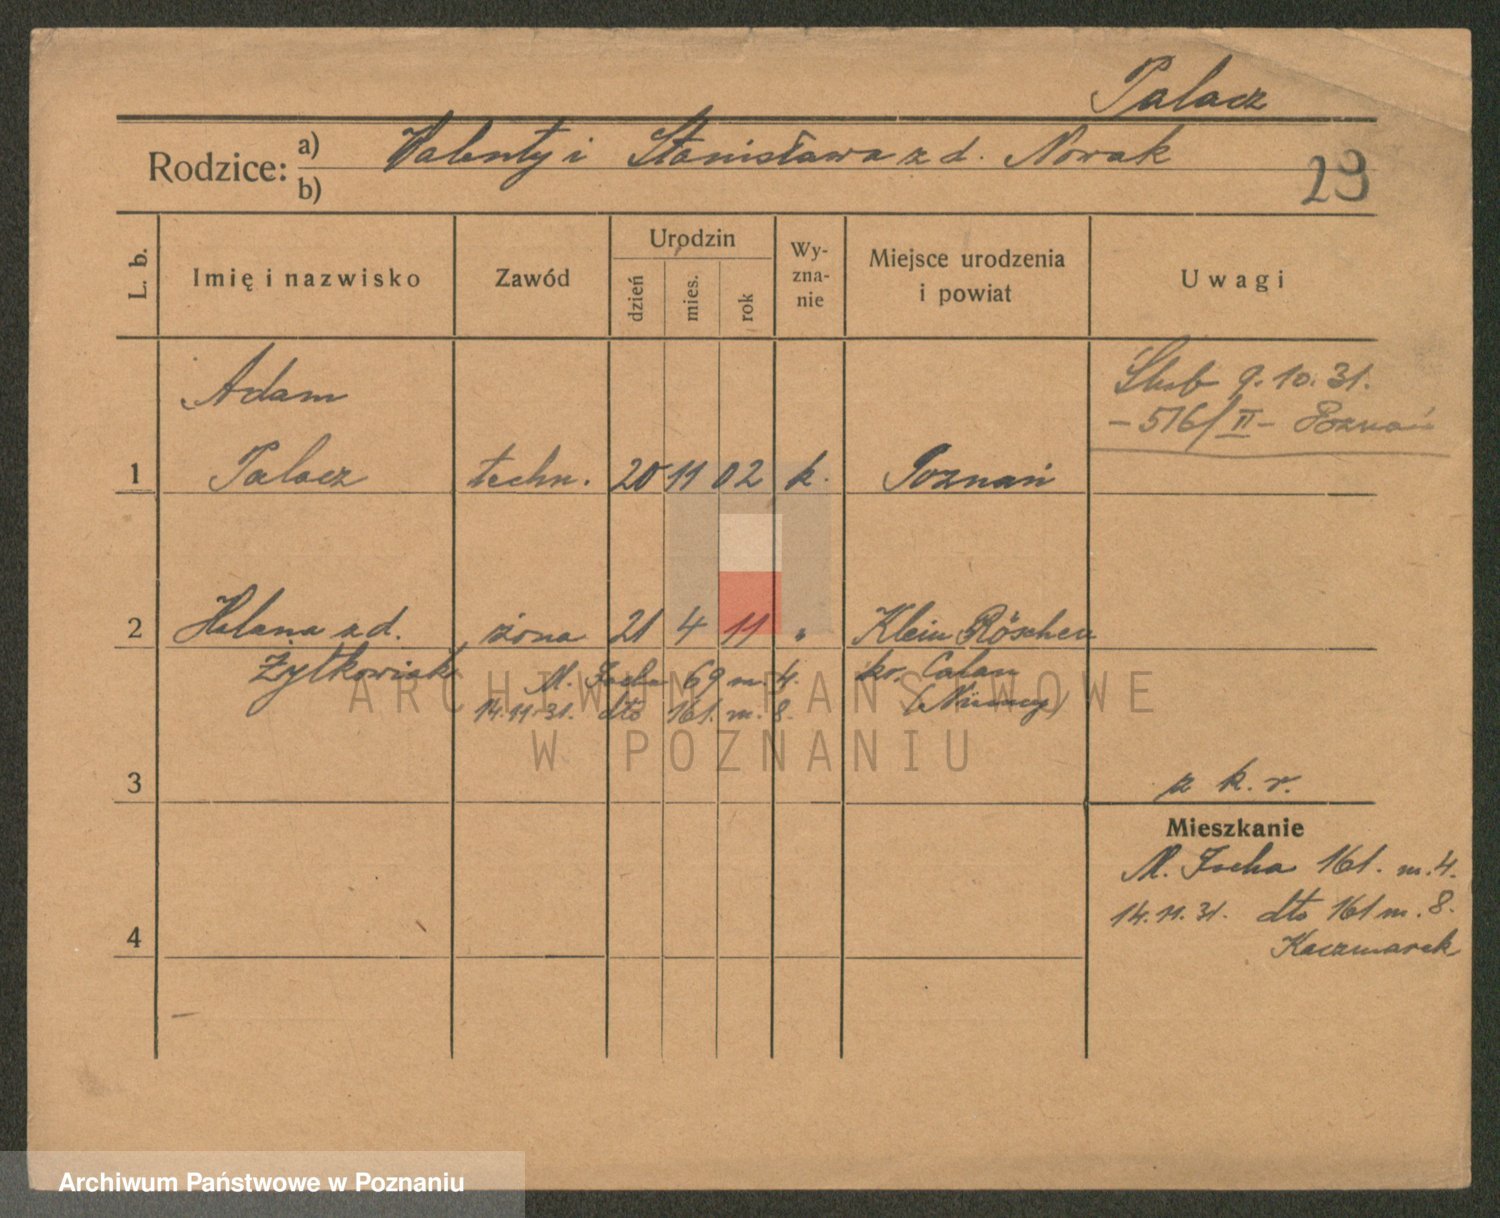 Palacz
Rodzice: a) Walenty i Stanisława z d. Nowak
b)
29
L. b.
Imię i nazwisko
Zawód
Urodzin
dzień
mies.
rok
Wy-
zna-
nie
Miejsce urodzenia
i powiat
Uwagi
Adam
Ślub 9.10.31.
– 516/II – Poznań
1 Palacz techn. 20 11 02 k. Poznań
2 Helena z d. żona 21 4 11 " Klein Röschen
Żytkowiak M. Focha 69 m. 4. kr. Calau
14.11.31. dto 161. m. 8. (Niemcy)
ARCHIWUM PAŃSTWOWE
W POZNANIU
3 z k. r.
Mieszkanie
M. Focha 161. m. 4.
14.11.31. dto 161 m. 8.
4 Kaczmarek
Archiwum Państwowe w Poznaniu